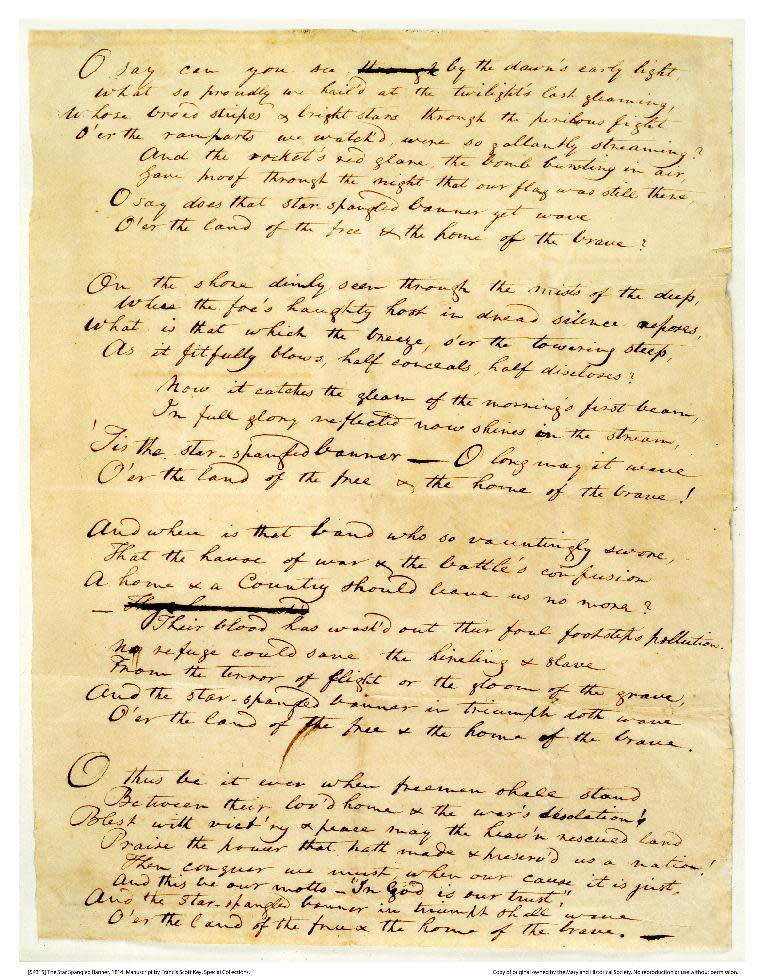 O say can you see by the dawn's early light,
What so proudly we hail'd at the twilight's last gleaming,
Whose broad stripes & bright stars through the perilous fight
O'er the ramparts we watch'd, were so gallantly streaming?
And the rocket's red glare, the bomb bursting in air,
Gave proof through the night that our flag was still there,
O say does that star spangled banner yet wave
O'er the land of the free & the home of the brave?
On the shore dimly seen through the mists of the deep,
Where the foe's haughty host in dread silence reposes,
What is that which the breeze, o'er the towering steep,
As it fitfully blows, half conceals, half discloses?
Now it catches the gleam of the morning's first beam,
In full glory reflected now shines in the stream,
'Tis the star-spangled banner — O long may it wave
O'er the land of the free & the home of the brave!
And where is that band who so vauntingly swore,
That the havoc of war & the battle's confusion
A home & a Country should leave us no more?
—
Their blood has wash'd out their foul footsteps pollution.
No refuge could save the hireling & slave
From the terror of flight or the gloom of the grave,
And the star-spangled banner in triumph doth wave
O'er the land of the free & the home of the brave.
O thus be it ever when freemen shall stand
Between their lov'd home & the war's desolation!
Blest with vict'ry & peace may the heav'n rescued land
Praise the power that hath made & preserv'd us a nation!
Then conquer we must, when our cause it is just,
And this be our motto - "In God is our trust,"
And the star-spangled banner in triumph shall wave
O'er the land of the free & the home of the brave. —
[54315] The Star Spangled Banner, 1814, Manuscript by Francis Scott Key, Special Collections.
Copy of original owned by the Maryland Historical Society. No reproduction or use without permission.